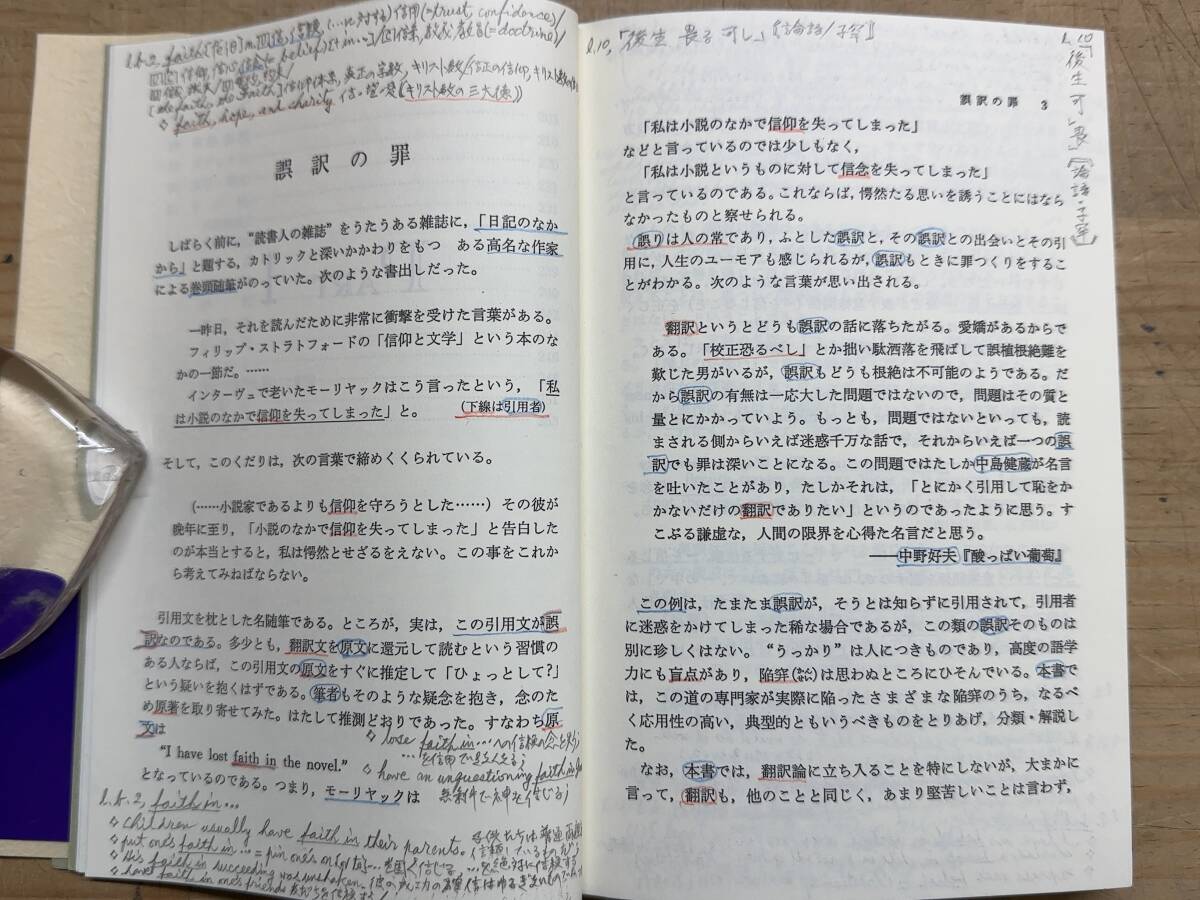 l.f.2, faith
信用(=trust, confidence)/
belief in
(=doctrine)/
信仰
キリスト教
faith, hope, and charity 信・望・愛(キリスト教の三大徳)
誤訳の罪
しばらく前に,“読書人の雑誌”をうたうある雑誌に,「日記のなか
から」と題する,カトリックと深いかかわりをもつ ある高名な作家
による巻頭随筆がのっていた。次のような書出しだった。
一昨日,それを読んだために非常に衝撃を受けた言葉がある。
フィリップ・ストラトフォードの「信仰と文学」という本のな
かの一節だ。……
インターヴュで老いたモーリヤックはこう言ったという,「私
は小説のなかで信仰を失ってしまった」と。 (下線は引用者)
そして,このくだりは,次の言葉で締めくくられている。
(……小説家であるよりも信仰を守ろうとした……) その彼が
晩年に至り,「小説のなかで信仰を失ってしまった」と告白した
のが本当とすると,私は愕然とせざるをえない。この事をこれか
ら考えてみねばならない。
引用文を枕とした名随筆である。ところが,実は,この引用文が誤
訳なのである。多少とも,翻訳文を原文に還元して読むという習慣の
ある人ならば,この引用文の原文をすぐに推定して「ひょっとして?」
という疑いを抱くはずである。筆者もそのような疑念を抱き,念のた
め原著を取り寄せてみた。はたして推測どおりであった。すなわち原
文は
lose faith in…への信頼の念を失う
“I have lost faith in the novel.”
have an unquestioning faith in God
となっているのである。つまり,モーリヤックは
無条件で神を信じる
l.f.2, faith in…
children usually have faith in their parents.
put one's faith in…=pin one's
His faith in succeeding was unshaken.
have faith in one's friends
l.10,「後生畏る可し」〔論語/子罕〕
l.10
「後生可畏」〔論語・子罕〕
誤訳の罪 3
「私は小説のなかで信仰を失ってしまった」
などと言っているのでは少しもなく,
「私は小説というものに対して信念を失ってしまった」
と言っているのである。これならば,愕然たる思いを誘うことにはなら
なかったものと察せられる。
誤りは人の常であり,ふとした誤訳と,その誤訳との出会いとその引
用に,人生のユーモアも感じられるが,誤訳もときに罪つくりをするこ
とがわかる。次のような言葉が思い出される。
翻訳というとどうも誤訳の話に落ちたがる。愛嬌があるからで
ある。「校正恐るべし」とか拙い駄洒落を飛ばして誤植根絶難を
歎じた男がいるが,誤訳もどうも根絶は不可能のようである。だ
から誤訳の有無は一応大した問題ではないので,問題はその質と
量とにかかっていよう。もっとも,問題ではないといっても,読
まされる側からいえば迷惑千万な話で,それからいえば一つの誤
訳でも罪は深いことになる。この問題ではたしか中島健蔵が名言
を吐いたことがあり,たしかそれは,「とにかく引用して恥をか
かないだけの翻訳でありたい」というのであったように思う。す
こぶる謙虚な,人間の限界を心得た名言だと思う。
――中野好夫『酸っぱい葡萄』
この例は,たまたま誤訳が,そうとは知らずに引用されて,引用者
に迷惑をかけてしまった稀な場合であるが,この類の誤訳そのものは
別に珍しくはない。“うっかり”は人につきものであり,高度の語学
力にも盲点があり,陥穽(かんせい)は思わぬところにひそんでいる。本書で
は,この道の専門家が実際に陥ったさまざまな陥穽のうち,なるべ
く応用性の高い,典型的ともいうべきものをとりあげ,分類・解説し
た。
なお,本書では,翻訳論に立ち入ることを特にしないが,大まかに
言って,翻訳も,他のことと同じく,あまり堅苦しいことは言わず,